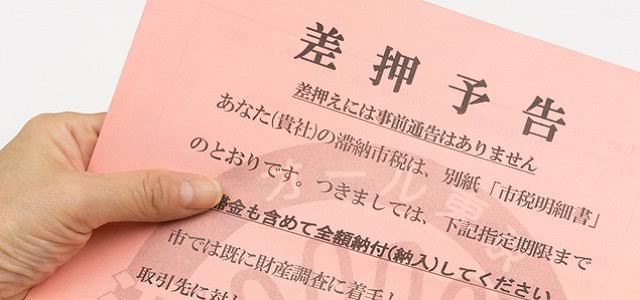 差押予告
差押えには事前通告はありません
あなた(貴社)の滞納市税は、別紙「市税明細書」
のとおりです。つきましては、下記指定期限まで
滞金も含めて全額納付(納入)してください
市では既に財産調査に着手し
取引先に対